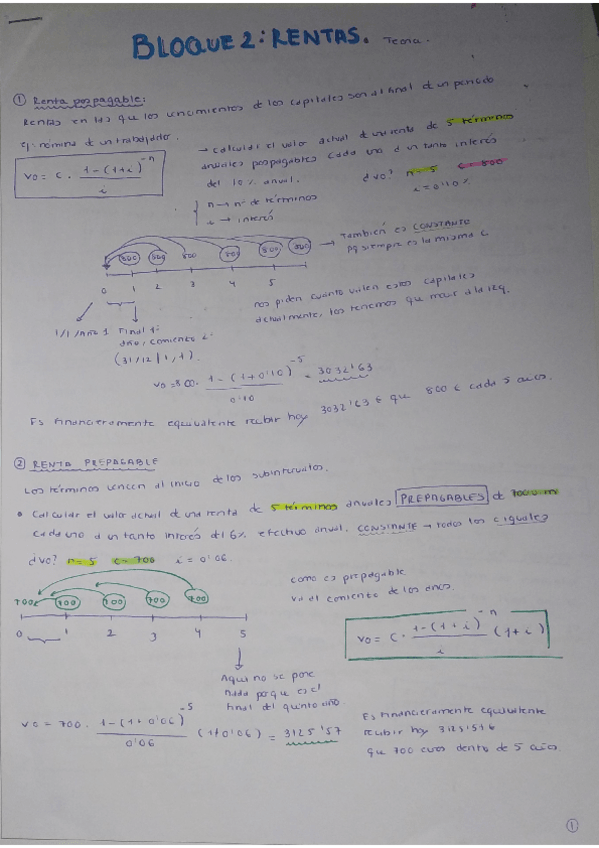 BLOQUE 2: RENTAS. Tema.
① Renta pospagable:
Rentas en las que los vencimientos de los capitales son al final de un periodo
Ej: nómina de un trabajador.
V0 = C · 1-(1+i)^-n / i
→ calcular el valor actual de una renta de 5 términos
anuales pospagables cada uno a un tanto interés
del 10% anual.
d V0? n=5 C=800
i=0'10%
n → nº de términos
i → interés
800 800 800 800 800
→ También es CONSTANTE
pq siempre es la misma C
0 1 2 3 4 5
nos piden cuánto valen estos capitales
actualmente, los tenemos que mover a la izq.
1/1/Año 1 Final 1:
año, comienzo 2:
V0=800· 1-(1+0'10)^-5 / 0'10 = 3032'63
Es financieramente equivalente recibir hoy 3032'63 € que 800 € cada 5 años.
② RENTA PREPAGABLE
Los términos vencen al inicio de los subintervalos.
• Calcular el valor actual de una renta de 5 términos anuales PREPAGABLES de
cada uno a un tanto interés del 6% efectivo anual. CONSTANTE → todos los C iguales
d V0? n=5 C=700 i=0'06.
700 700 700 700 700
0 1 2 3 4 5
como es prepagable
va al comienzo de los años.
V0= C · 1-(1+i)^-n / i (1+i)
Aqui no se pone
nada porque es el
final del quinto año.
V0 = 700 · 1-(1+0'06)^-5 / 0'06 (1+0'06) = 3125'57
Es financieramente equivalente
recibir hoy
que 700 euros dentro de 5 años
①